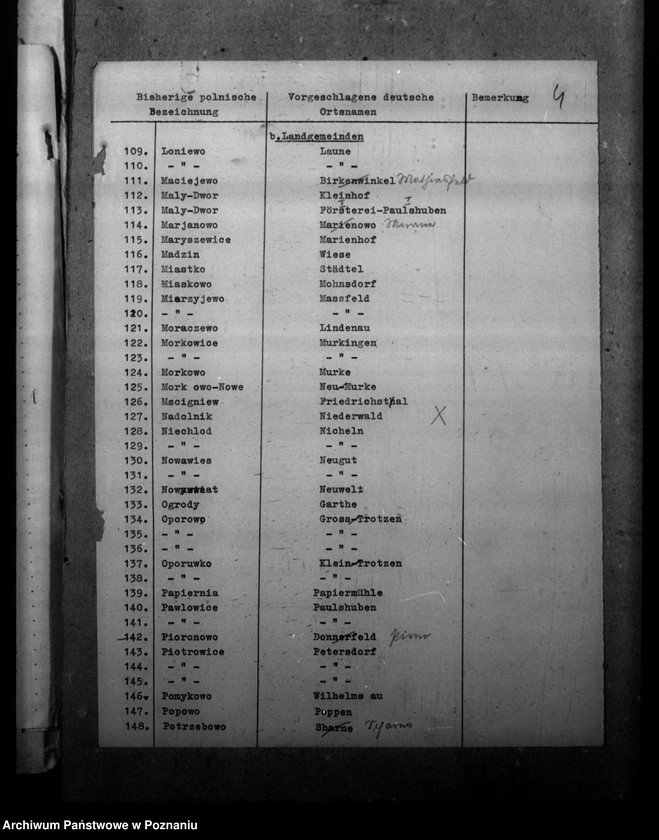 Bisherige polnische Bezeichnung Vorgeschlagene deutsche Ortsnamen Bemerkung 4
b.Landgemeinden
109. Loniewo Laune
110. - " - - " -
111. Maciejewo Birkenwinkel
112. Maly-Dwor Kleinhof
113. Maly-Dwor Försterei-Paulshuben
114. Marjanowo Marienowo
115. Maryszewice Marienhof
116. Madzin Wiese
117. Miastko Städtel
118. Miaskowo Mohnsdorf
119. Mierzyjewo Massfeld
120. - " - - " -
121. Moraczewo Lindenau
122. Morkowice Murkingen
123. - " - - " -
124. Morkowo Murke
125. Mork owo-Nowe Neu-Murke
126. Mscigniew Friedrichsthal
127. Nadolnik Niederwald X
128. Niechlod Nicheln
129. - " - - " -
130. Nowawies Neugut
131. - " - - " -
132. Nowyswiat Neuwelt
133. Ogrody Garthe
134. Oporowo Gross-Trotzen
135. - " - - " -
136. - " - - " -
137. Oporuwko Klein-Trotzen
138. - " - - " -
139. Papiernia Papiermühle
140. Pawlowice Paulshuben
141. - " - - " -
142. Pioronowo Donnerfeld
143. Piotrowice Petersdorf
144. - " - - " -
145. - " - - " -
146. Pomykowo Wilhelms au
147. Popowo Poppen
148. Potrzebowo Sharne
Archiwum Państwowe w Poznaniu